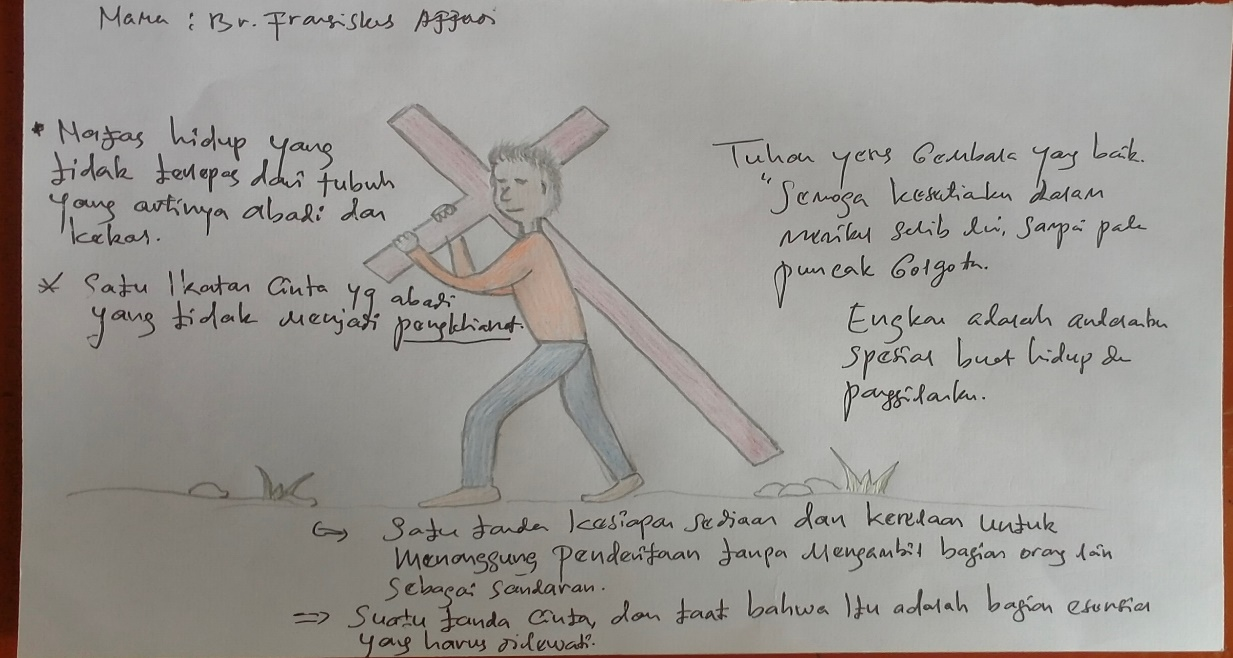 Nama : Br. Fransiskus
* Nafas hidup yang
tidak terlepas dari tubuh
yang artinya abadi dan
kekas.
* Satu Ikatan Cinta yg abadi
yang tidak menjadi pengkhianat.
Tuhan yesus Gembala yang baik.
"Semoga kesetiaku dalam
memikul salib ini, sampai pada
puncak Golgota.
Engkau adalah andalanku
spesial buat hidup dan
panggilanku.
↪ Satu tanda kesiapan sediaan dan kerelaan untuk
Menanggung Penderitaan tanpa Mengambil bagian orang lain
Sebagai Sandaran.
⇒ Suatu tanda Cinta, dan taat bahwa Itu adalah bagian esensia
yang harus dilewati.